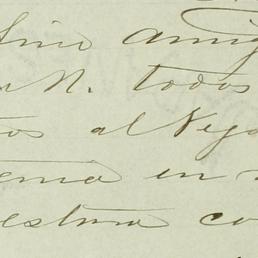 fino amig
N. todos
tos al Nego
ema en
estma co